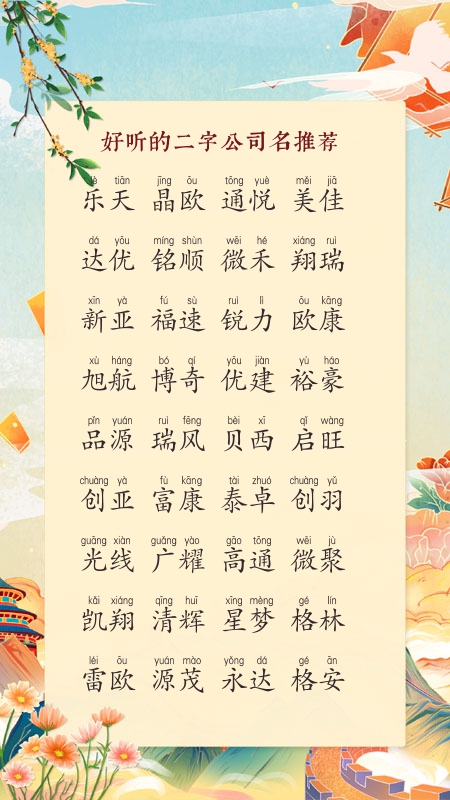 好听的二字公司名推荐
lè tiān jīng ōu tōng yuè měi jiā
乐天 晶欧 通悦 美佳
dá yōu míng shùn wēi hé xiáng ruì
达优 铭顺 微禾 翔瑞
xīn yà fú sù ruì lì ōu kāng
新亚 福速 锐力 欧康
xù háng bó qí yōu jiàn yù háo
旭航 博奇 优建 裕豪
pǐn yuán ruì fēng bèi xī qǐ wàng
品源 瑞风 贝西 启旺
chuàng yà fù kāng tài zhuó chuàng yǔ
创亚 富康 泰卓 创羽
guāng xiàn guǎng yào gāo tōng wēi jù
光线 广耀 高通 微聚
kǎi xiáng qīng huī xīng mèng gé lín
凯翔 清辉 星梦 格林
léi ōu yuán mào yǒng dá gé ān
雷欧 源茂 永达 格安